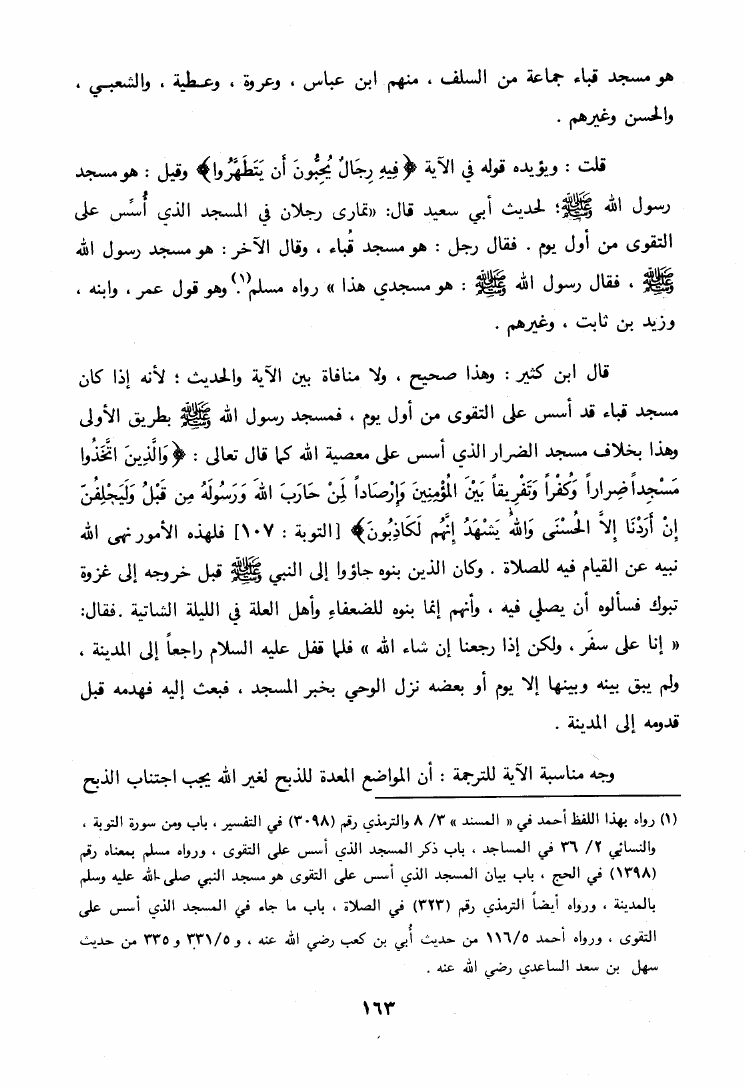 هو مسجد قباء جماعة من السلف ، منهم ابن عباس ، وعروة ، وعطية ، والشعبي ،
والحسن وغيرهم .
قلت : ويؤيده قوله في الآية ﴿فِيهِ رِجَالٌ يُحِبُّونَ أَن يَتَطَهَّرُوا﴾ وقيل : هو مسجد
رسول الله ﷺ؛ لحديث أبي سعيد قال: «تمارى رجلان في المسجد الذي أُسِّس على
التقوى من أول يوم . فقال رجل : هو مسجد قُباء ، وقال الآخر : هو مسجد رسول الله
ﷺ ، فقال رسول الله ﷺ : هو مسجدي هذا » رواه مسلم(١). وهو قول عمر ، وابنه ،
وزيد بن ثابت ، وغيرهم .
قال ابن كثير : وهذا صحيح ، ولا منافاة بين الآية والحديث ؛ لأنه إذا كان
مسجد قباء قد أسس على التقوى من أول يوم ، فمسجد رسول الله ﷺ بطريق الأولى
وهذا بخلاف مسجد الضرار الذي أسس على معصية الله كما قال تعالى : ﴿وَالَّذِينَ اتَّخَذُوا
مَسْجِداً ضِراراً وَكُفْراً وَتَفْرِيقاً بَيْنَ المُؤْمِنِينَ وَإِرْصَاداً لِمَنْ حَارَبَ اللهَ وَرَسُولَهُ مِن قَبْلُ وَلَيَحْلِفُنَّ
إِنْ أَرَدْنَا إِلاَّ الحُسْنَى وَاللهُ يَشْهَدُ إِنَّهُم لَكَاذِبُونَ﴾ [التوبة : ١٠٧] فلهذه الأمور نهى الله
نبيه عن القيام فيه للصلاة . وكان الذين بنوه جاؤوا إلى النبي ﷺ قبل خروجه إلى غزوة
تبوك فسألوه أن يصلي فيه ، وأنهم إنما بنوه للضعفاء وأهل العلة في الليلة الشاتية .فقال:
« إنا على سفَر ، ولكن إذا رجعنا إن شاء الله » فلما قفل عليه السلام راجعاً إلى المدينة ،
ولم يبق بينه وبينها إلا يوم أو بعضه نزل الوحي بخبر المسجد ، فبعث إليه فهدمه قبل
قدومه إلى المدينة .
وجه مناسبة الآية للترجمة : أن المواضع المعدة للذبح لغير الله يجب اجتناب الذبح
(١) رواه بهذا اللفظ أحمد في « المسند » ٣/ ٨ والترمذي رقم (٣٠٩٨) في التفسير ، باب ومن سورة التوبة ،
والنسائي ٢/ ٣٦ في المساجد ، باب ذكر المسجد الذي أسس على التقوى ، ورواه مسلم بمعناه رقم
(١٣٩٨) في الحج ، باب بيان المسجد الذي أسس على التقوى هو مسجد النبي صلى الله عليه وسلم
بالمدينة ، ورواه أيضاً الترمذي رقم (٣٢٣) في الصلاة ، باب ما جاء في المسجد الذي أسس على
التقوى ، ورواه أحمد ١١٦/٥ من حديث أُبي بن كعب رضي الله عنه ، و ٣٣١/٥ و ٣٣٥ من حديث
سهل بن سعد الساعدي رضي الله عنه .
١٦٣